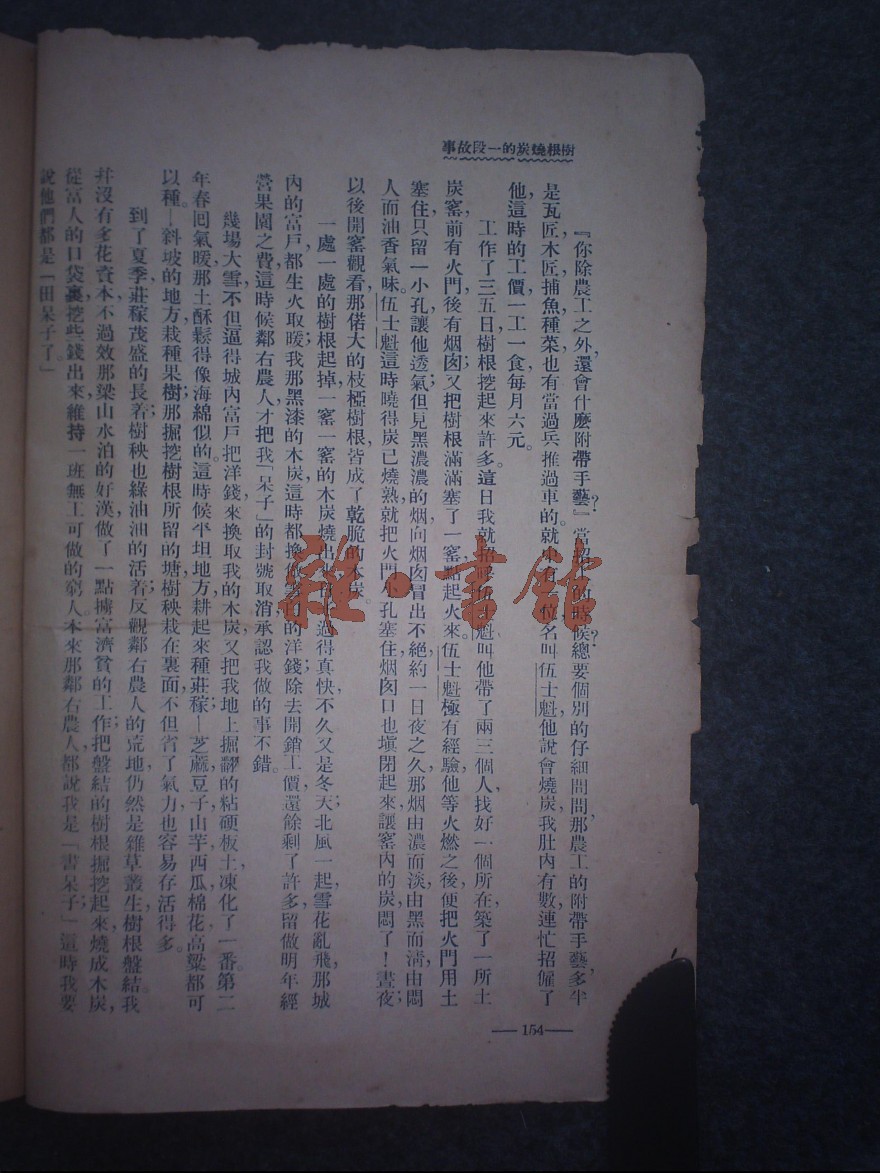 樹根燒炭的一段故事
『你除農工之外,還會什麽附帶手藝?』當招工的時候,總要個別的仔細問問,那農工的附帶手藝,多半
是瓦匠,木匠,捕魚,種菜,也有當過兵,推過車的。就中有一位名叫伍士魁,他說會燒炭,我肚內有數,連忙招僱了
他,這時的工價,一工一食,每月六元。
工作了三五日,樹根挖起來許多。這日我就招呼伍士魁,叫他帶了兩三個人,找好一個所在,築了一所土
炭窰,前有火門,後有烟囱,又把樹根滿滿塞了一窰,點起火來。伍士魁極有經驗,他等火燃之後,便把火門用土
塞住,只留一小孔,讓他透氣;但見黑濃濃的烟向烟囱冒出不絕,約一日夜之久,那烟由濃而淡,由黑而清,由悶
人而油香氣味。伍士魁這時曉得炭已燒熟,就把火門小孔塞住,烟囱口也塡閉起來,讓窰內的炭悶了!晝夜;
以後開窰觀看,那偌大的枝椏樹根,皆成了乾脆的木炭。
一處一處的樹根起掉,一窰一窰的木炭燒出,過得真快,不久又是冬天;北風一起,雪花亂飛,那城
內的富戶,都生火取暖,我那黑漆的木炭,這時都換做的洋錢,除去開銷工價,還餘剩了許多,留做明年經
營果園之費;這時候鄰右農人,才把我「呆子」的封號取消,承認我做的事不錯。
幾場大雪,不但逼得城內富戶,把洋錢來換取我的木炭;又把我地上掘翻的粘硬板土,凍化了一番。第二
年春回氣暖,那土酥鬆得像海綿似的。這時候平坦地方,耕起來種莊稼—芝蔴,豆子,山芋,西瓜,棉花,高粱,都可
以種—斜坡的地方,栽種果樹;那掘挖樹根所留的塘,樹秧栽在裏面,不但省了氣力,也容易存活得多。
到了夏季,莊稼茂盛的長着,樹秧也綠油油的活着;反觀鄰右農人的荒地,仍然是雜草叢生,樹根盤結。我
幷沒有多花資本,不過效那梁山水泊的好漢,做了一點擄富濟貧的工作;把盤結的樹根掘挖起來,燒成木炭,
從富人的口袋裏,挖些錢出來,維持一班無工可做的窮人。本來那鄰右農人,都說我是「書呆子」,這時我要
說他們都是「田呆子了」
— 154 —
雜·書館